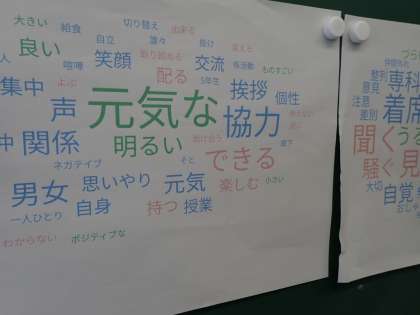 大きい 給食 切り替え 出来る
良い 自立 黙々 助け 変えた
人 喧嘩 笑顔 取り組める 交流 係活動
集中 よぶ 配る 5年生 ものすごい
声 元気な 挨拶 個性
仲 関係 明るい 協力
ネガテイブ そと できる 廊下
男女 思いやり 元気 楽しむ 小さい
一人ひとり 自身 持つ 授業
わからない ポジティブな
専科
整列 意見
注意 着席
差別
聞く うる
騒ぐ 見
大切 自覚